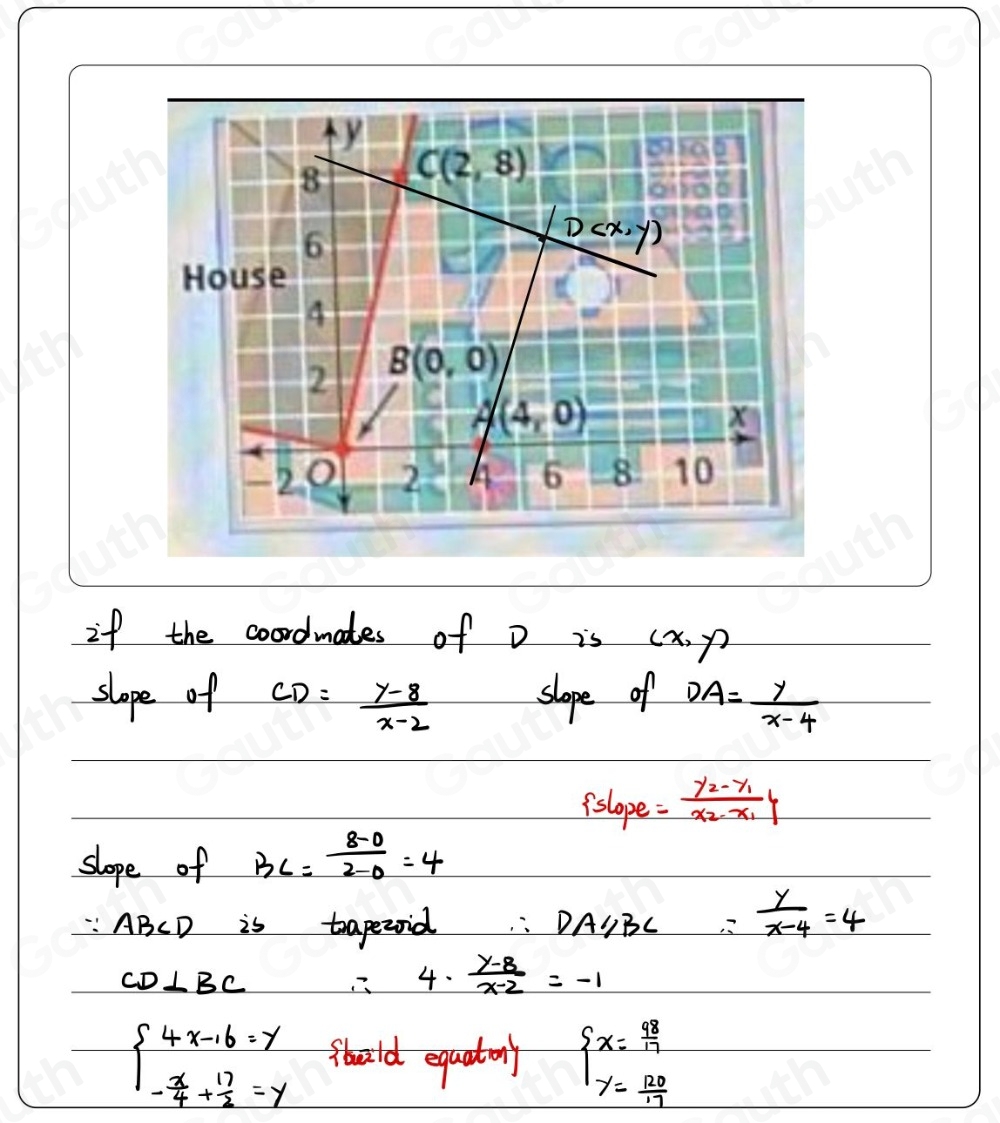 y
8
C(2, 8)
D(x,y)
6
House
4
B(0, 0)
2
A(4, 0)
x
-2 O 2 4 6 8 10
if the coordinates of D is (x,y)
slope of CD = \frac{y-8}{x-2} slope of DA = \frac{y}{x-4}
{slope = \frac{y2-y1}{x2-x1}}
slope of BC = \frac{8-0}{2-0} = 4
∵ ABCD is trapezoid ∴ DA//BC ∴ \frac{y}{x-4} = 4
CD⊥BC ∴ 4 · \frac{y-8}{x-2} = -1
{ 4x-16 = y {build equation} { x = \frac{98}{17}
-\frac{x}{4} + \frac{17}{2} = y y = \frac{120}{17}
Gauth